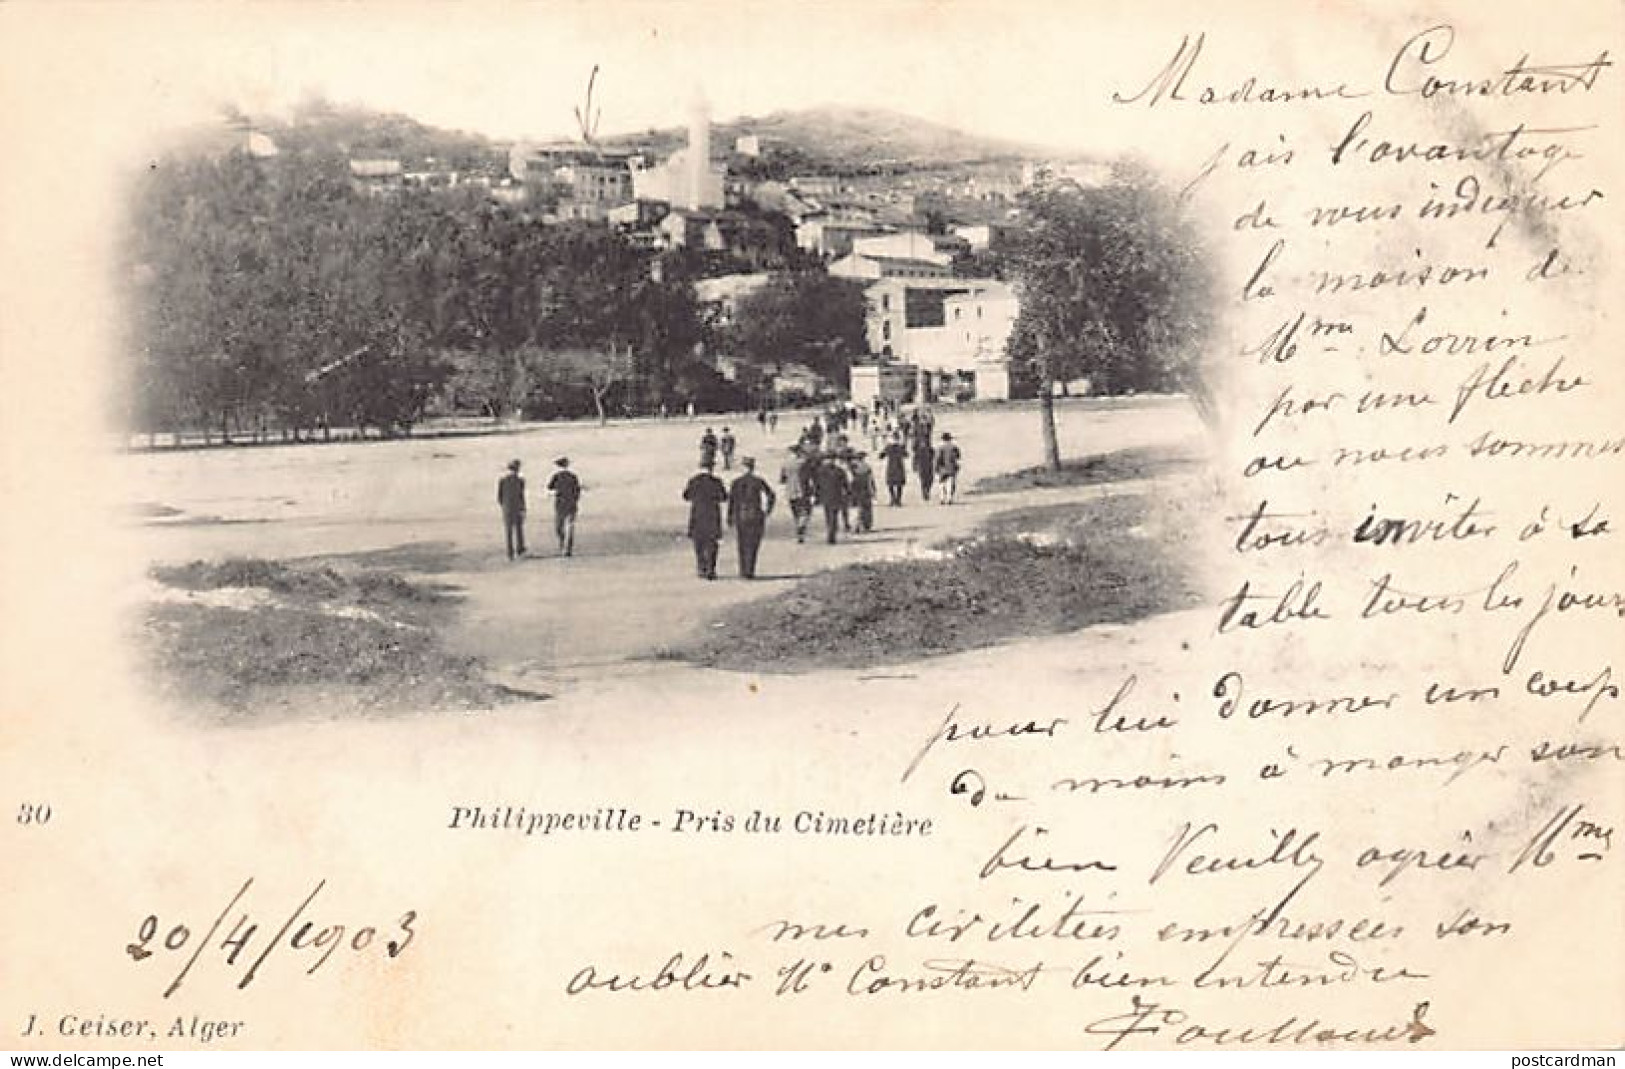 Madame Constant
j'ais l'avantage
de vous indiquer
la maison de
Mme Lorrin
par une flèche
ou nous sommes
tous inviter à sa
table tous les jours
pour lui donner un coup
de main à manger son
bien Veuilly agréer Mme
mes civilitées empressées son
oublier Mr Constant bien entendu
30
Philippeville - Pris du Cimetière
20/4/1903
J. Geiser, Alger
www.delcampe.net
postcardman